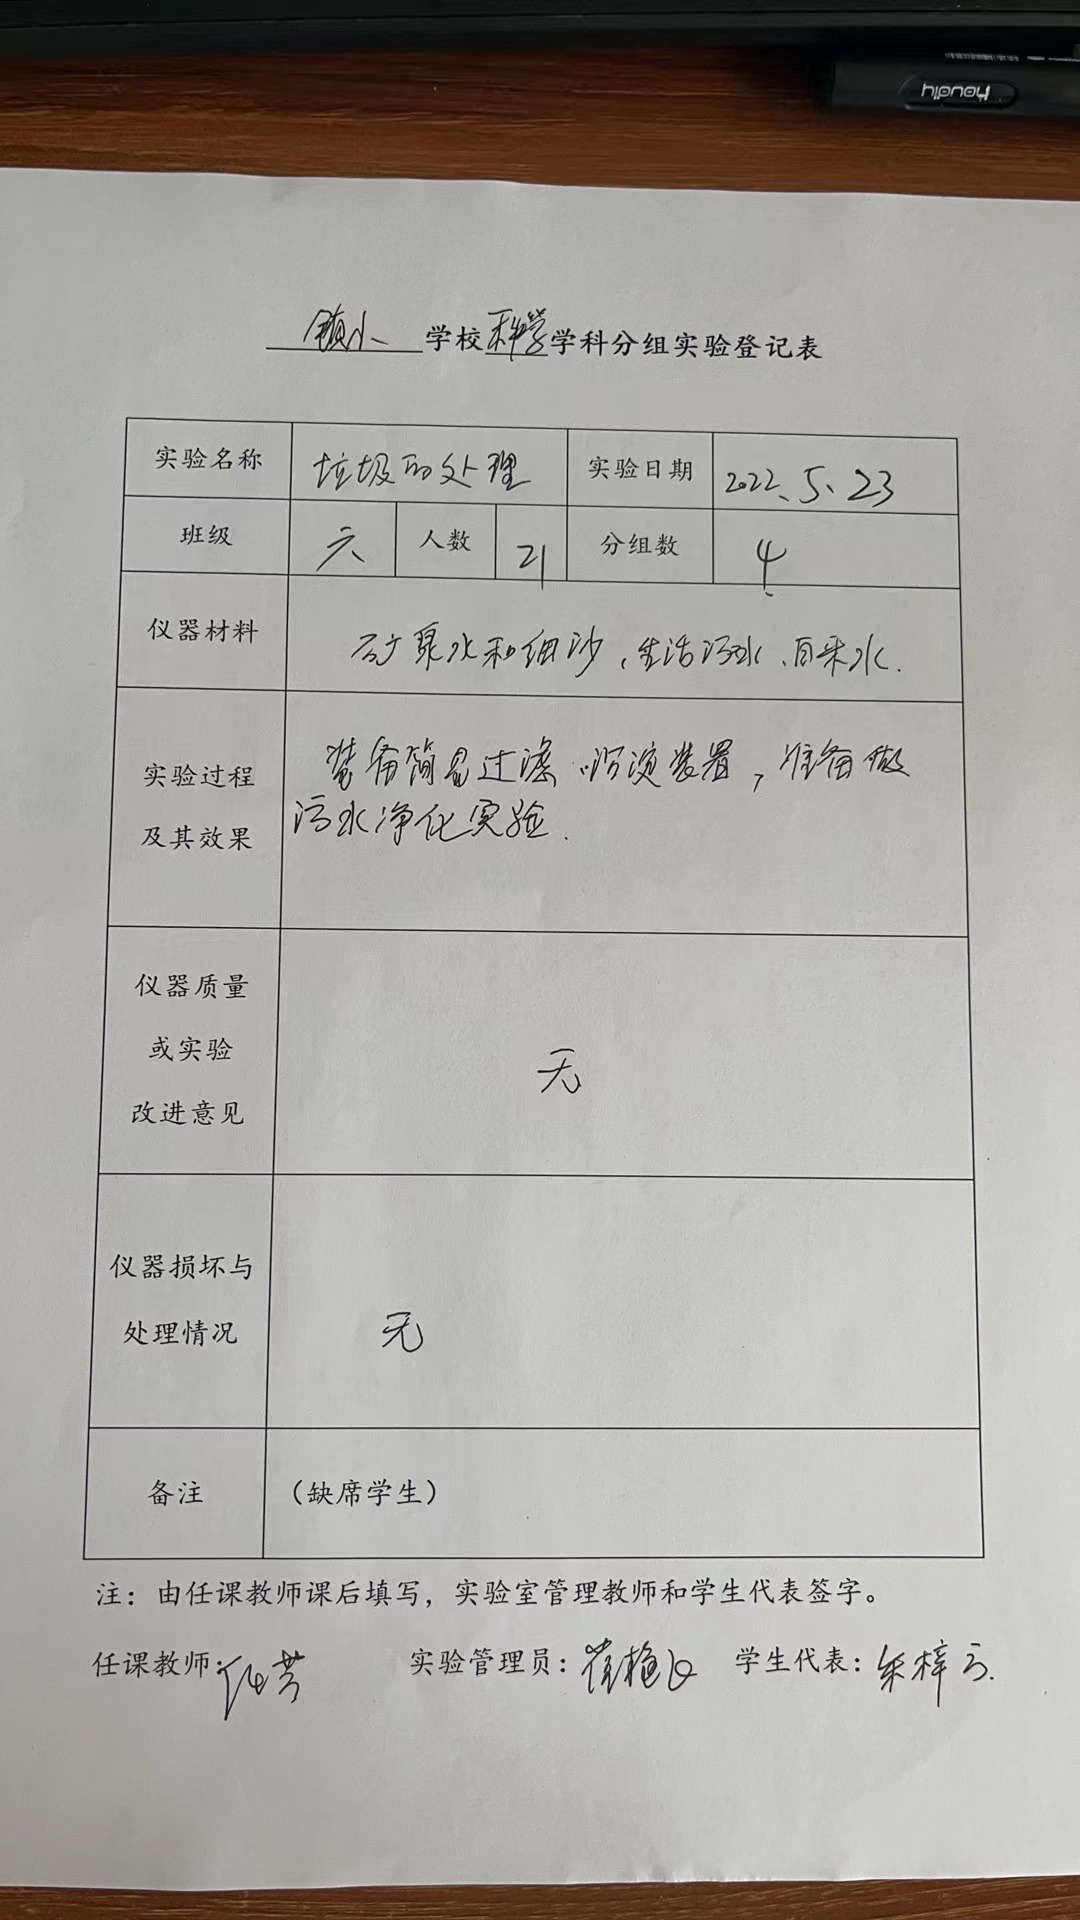 houdiy
镇小 学校科学学科分组实验登记表
实验名称 垃圾的处理 实验日期 2022、5、23
班级 六 人数 21 分组数 4
仪器材料 矿泉水和细沙、生活污水、自来水.
实验过程 装备简易过滤、沉淀装置，准备做
及其效果 污水净化实验.
仪器质量
或实验
改进意见
无
仪器损坏与
处理情况
无
备注 （缺席学生）
注：由任课教师课后填写，实验室管理教师和学生代表签字。
任课教师： 实验管理员： 学生代表：朱梓